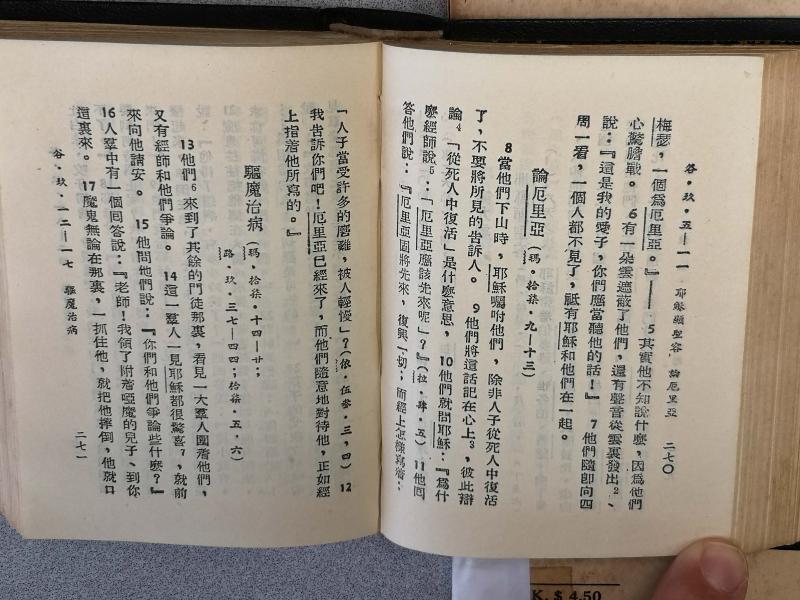 谷·玖·五—一一 耶穌顯聖容 論厄里亞 二七〇
梅瑟，一個爲厄里亞。』—— 5 其實他不知說什麼，因爲他們
心驚膽戰。 6 有一朵雲遮蔽了他們，還有聲音從雲裏發出2、
說：『這是我的愛子，你們應當聽他的話！』 7 他們隨即向四
周一看，一個人都不見了，祗有耶穌和他們在一起。
論厄里亞（瑪·拾柒·九—十三）
8 當他們下山時，耶穌囑咐他們，除非人子從死人中復活
了，不要將所見的告訴人。 9 他們將這話記在心上3，彼此辯
論4「從死人中復活」是什麼意思， 10 他們就問耶穌：『爲什
麼經師說5：「厄里亞應該先來呢」？』（拉·肆·五） 11 他回
答他們說：『厄里亞固將先來，復興一切；而經上怎樣寫着：
「人子當受許多的磨難，被人輕慢」？（依·伍叁·三，四） 12
我告訴你們吧！厄里亞已經來了，而他們隨意地對待他，正如經
上指着他所寫的。』
驅魔治病（瑪·拾柒·十四—廿；
路·玖·三七—四四；拾柒·五，六）
13 他們6來到了其餘的門徒那裏，看見一大羣人圍着他們，
又有經師和他們爭論。 14 這一羣人一見耶穌都很驚喜7，就前
來向他請安。 15 他問他們說：『你們和他們爭論些什麼？』
16 人羣中有一個回答說：『老師！我領了附着啞魔的兒子、到你
這裏來。 17 魔鬼無論在那裏，一抓住他，就把他摔倒，他就口
谷·玖·一二—一七 驅魔治病 二七一
K. $ 4.50